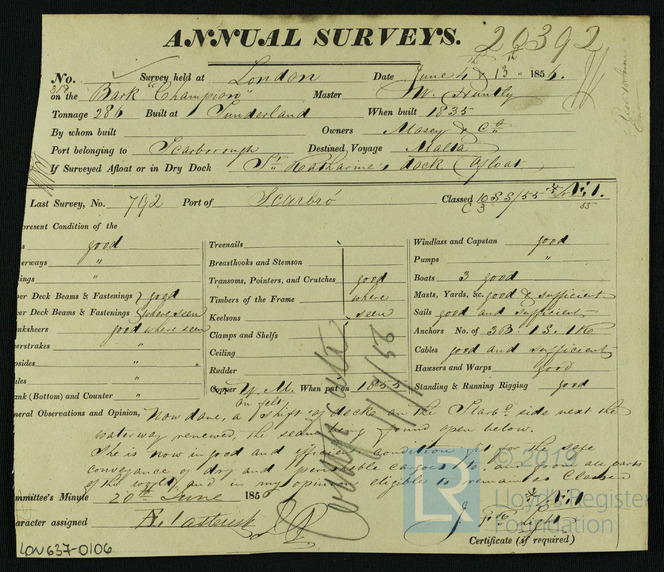 ANNUAL SURVEYS.
20392
No. Survey held at London Date June 4 & 13th 1856.
on the Bark "Champion" Master W. Huntly
Tonnage 286 Built at Sunderland When built 1835
By whom built Owners Mosey & Co.
Port belonging to Scarborough Destined Voyage Malta
If Surveyed Afloat or in Dry Dock St Katharine's dock Afloat
Last Survey, No. 792 Port of Scarbro' Classed 10 SS/55
resent Condition of the
good
erways "
ings "
er Deck Beams & Fastenings good
Deck Beams & Fastenings where seen
nksheers good where seen
erstrakes "
psides "
ank (Bottom) and Counter "
Treenails
Breasthooks and Stemson
Transoms, Pointers, and Crutches good
Timbers of the Frame where
Keelsons seen
Clamps and Shelfs
Ceiling
Rudder
Copper Y.M. When put on 1855
on felt
Windlass and Capstan good
Pumps "
Boats 3 good
Masts, Yards, &c. good & sufficient
Sails good and sufficient
Anchors No. of 3B. 1S. 1K
Cables good and sufficient
Hawsers and Warps good
Standing & Running Rigging good
neral Observations and Opinion, Now done, a shift of decks on the Starbd side next the
waterway renewed, the seam being found open below.
She is now in good and efficient condition fit for the safe
conveyance of dry and perishable cargoes to and from all parts
of the world, and in my opinion eligible to remain as Classed
mmittee's Minute 20th June 1856
aracter assigned A. 1 asterisk
Certificate (if required)
LON637-0106
© 2019
LR
Lloyd's Register
Foundation